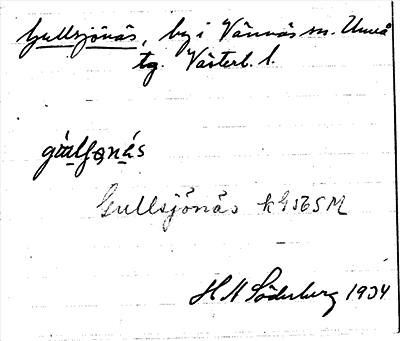 Gullsjönäs, by i Vännäs sn. Umeå
tg. Västerb. l.
Gullsjönäs k
H M Söderberg 1934